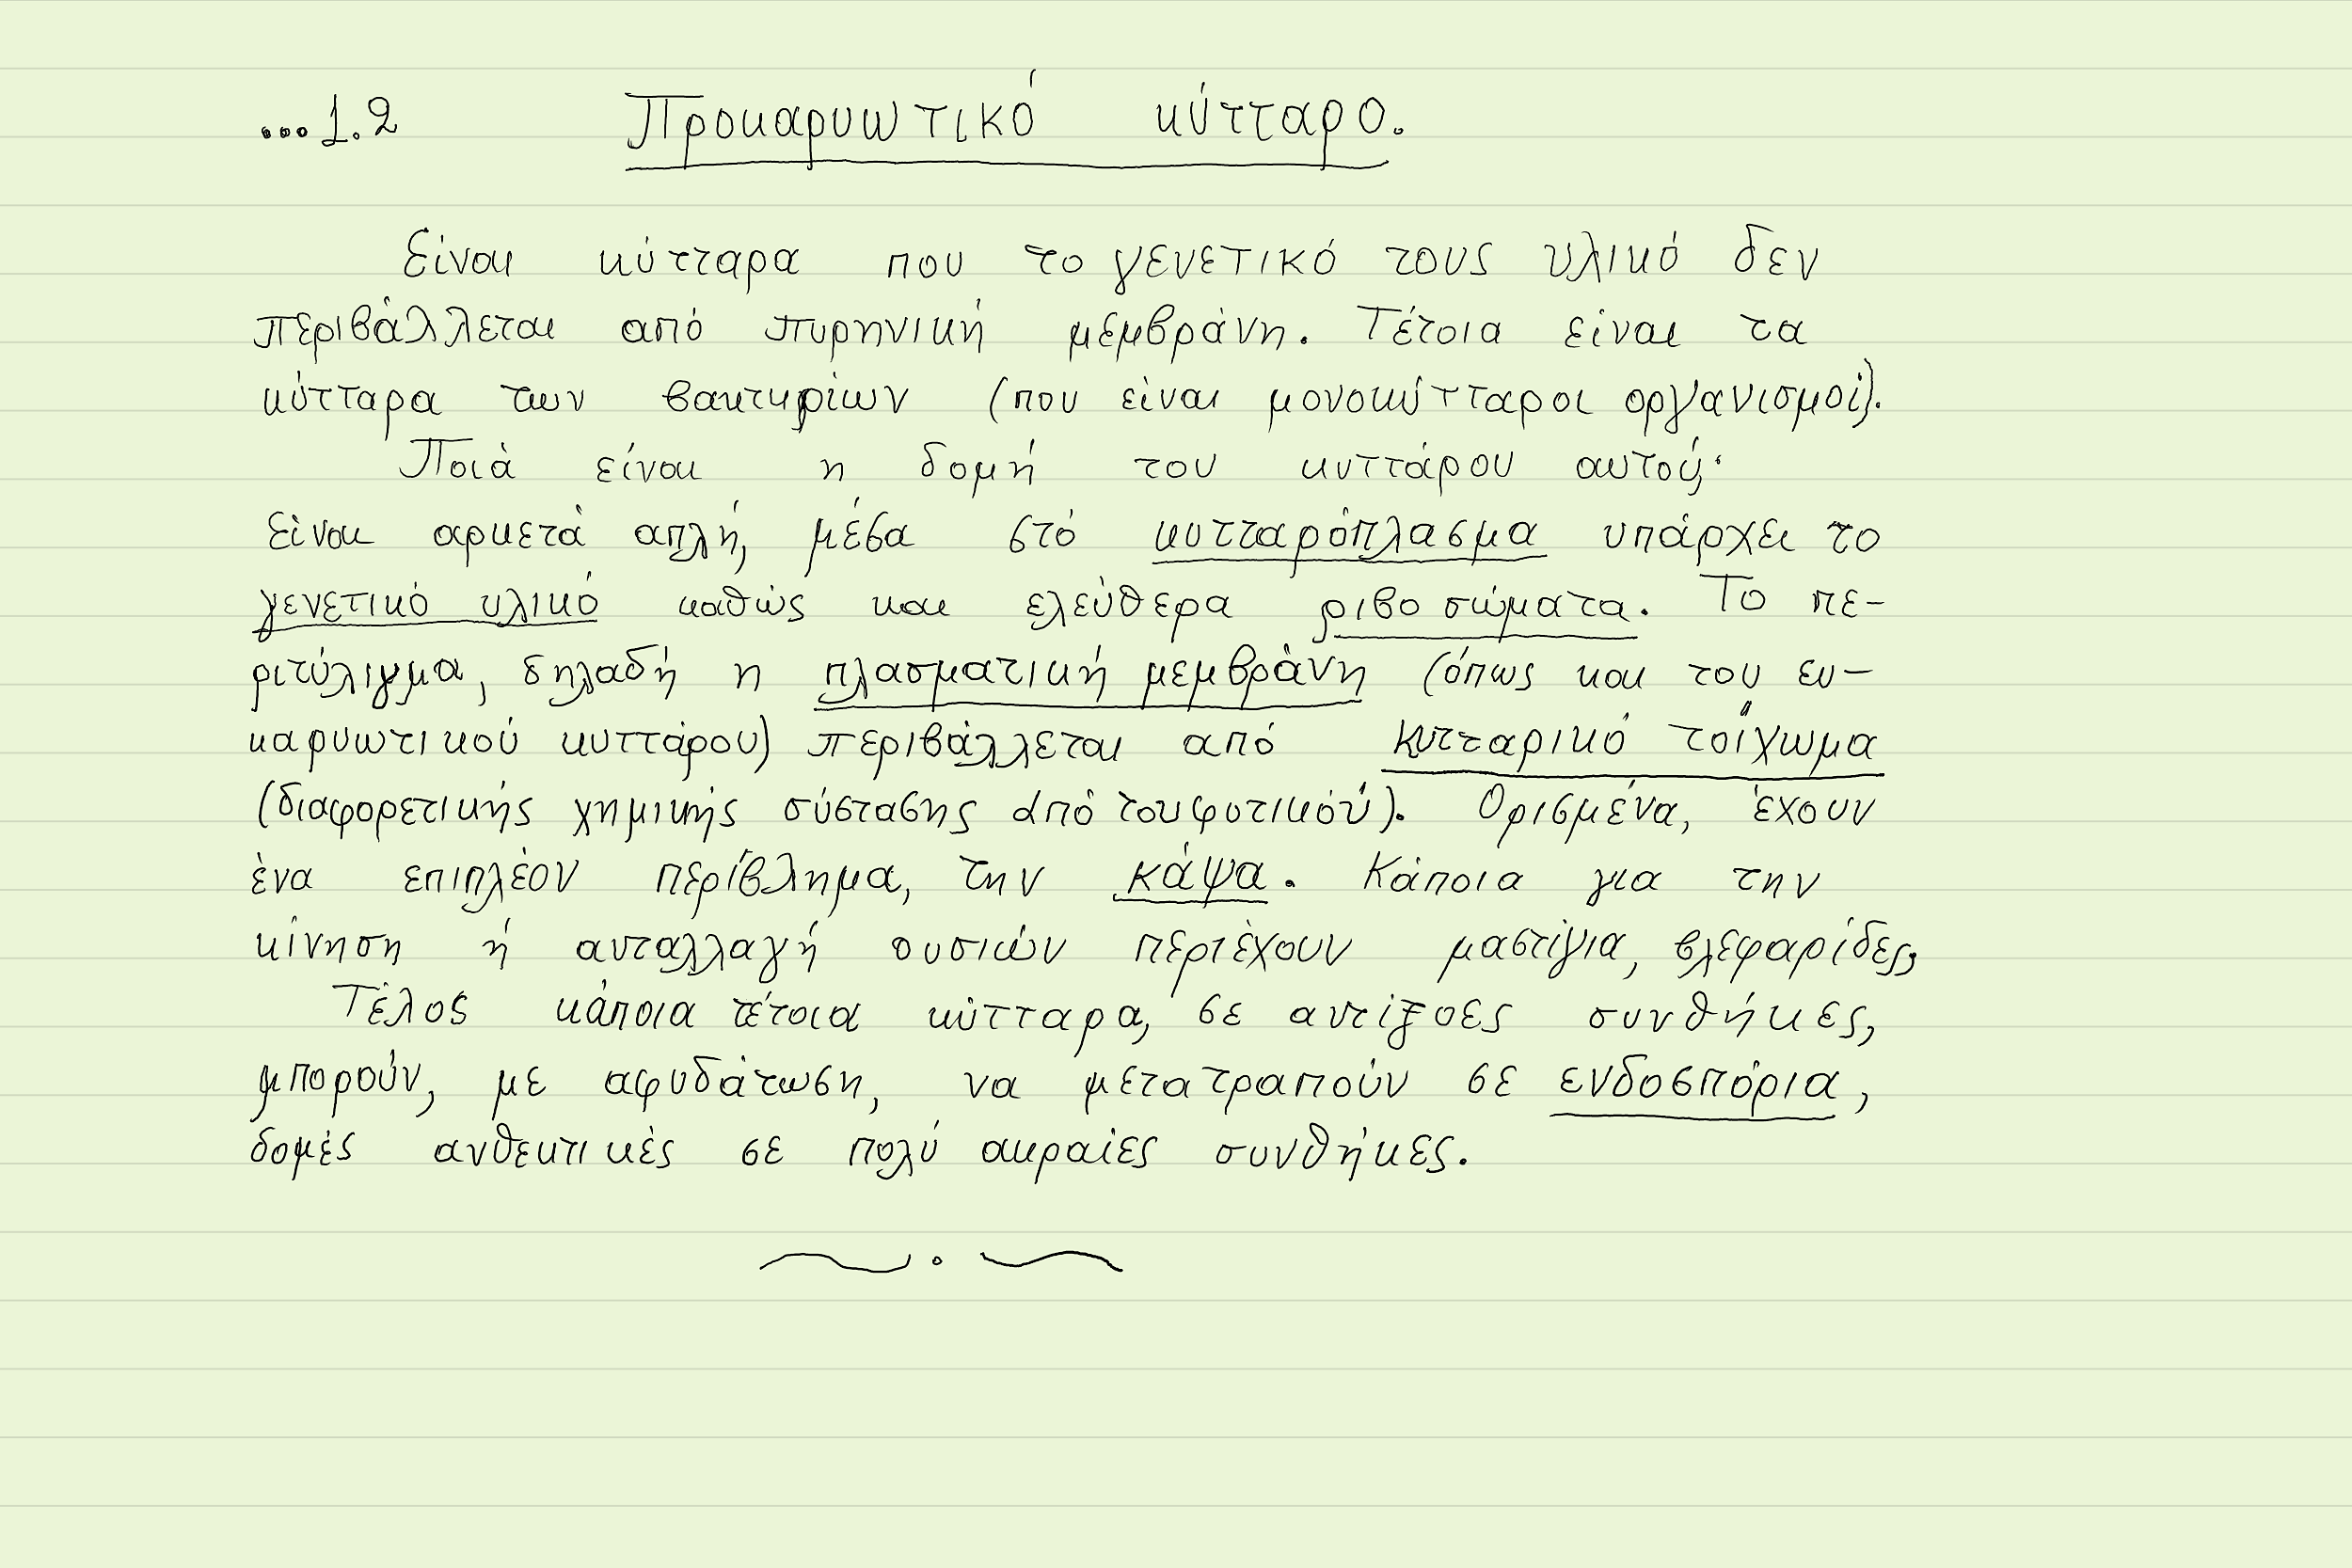 ...1.2 Προκαρυωτικό κύτταρο.
Είναι κύτταρα που το γενετικό τους υλικό δεν
περιβάλλεται από πυρηνική μεμβράνη. Τέτοια είναι τα
κύτταρα των βακτηρίων (που είναι μονοκύτταροι οργανισμοί).
Ποιά είναι η δομή του κυττάρου αυτού;
Είναι αρκετά απλή, μέσα στό κυτταρόπλασμα υπάρχει το
γενετικό υλικό καθώς και ελεύθερα ριβοσώματα. Το πε-
ριτύλιγμα, δηλαδή η πλασματική μεμβράνη (όπως και του ευ-
καρυωτικού κυττάρου) περιβάλλεται από κυτταρικό τοίχωμα
(διαφορετικής χημικής σύστασης από του φυτικού). Ορισμένα, έχουν
ένα επιπλέον περίβλημα, την κάψα. Κάποια για την
κίνηση ή ανταλλαγή ουσιών περιέχουν μαστίγια, βλεφαρίδες,
Τέλος κάποια τέτοια κύτταρα, σε αντίξοες συνθήκες,
μπορούν, με αφυδάτωση, να μετατραπούν σε ενδοσπόρια,
δομές ανθεκτικές σε πολύ ακραίες συνθήκες.